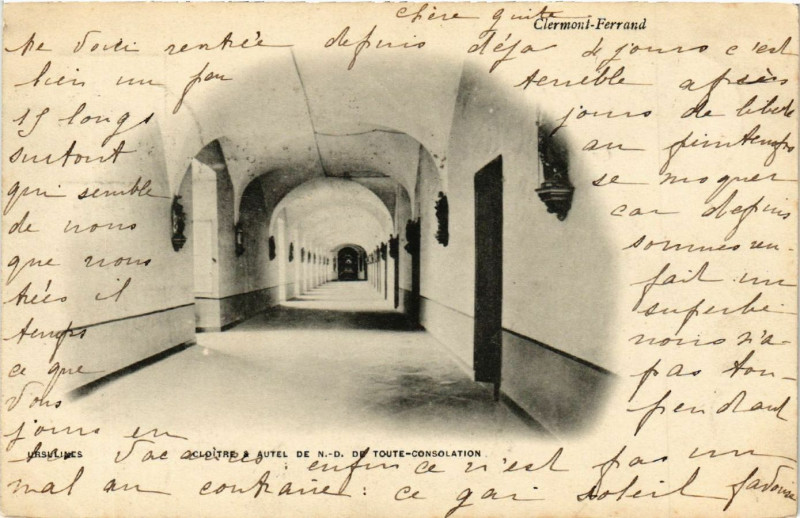 chère guite
Clermont-Ferrand
Me voici rentrée depuis déjà 4 jours c'est
bien un peu terrible après
15 longs jours de liberté
surtout au printemps
qui semble se moquer
de nous car depuis
que nous sommes ren-
trées il fait un
temps superbe
ce que nous n'a-
vons pas tou-
jours eu pendant
URSULINES CLOÎTRE & AUTEL DE N.-D. DE TOUTE-CONSOLATION
les vacances : enfin ce n'est pas un
mal au contraire : ce gai soleil